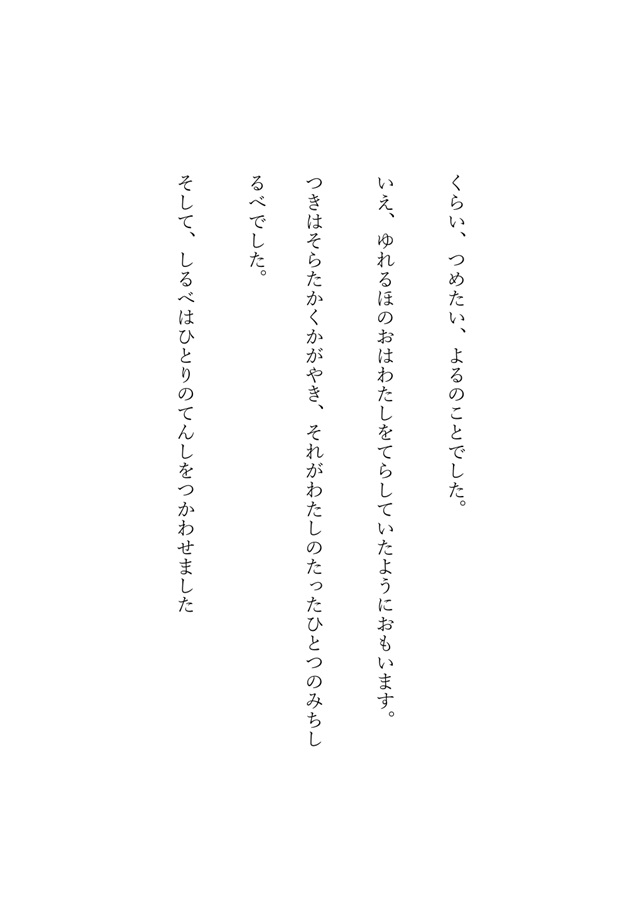 くらい、つめたい、よるのことでした。
いえ、ゆれるほのおはわたしをてらしていたようにおもいます。
つきはそらたかくかがやき、それがわたしのたったひとつのみちし
るべでした。
そして、しるべはひとりのてんしをつかわせました